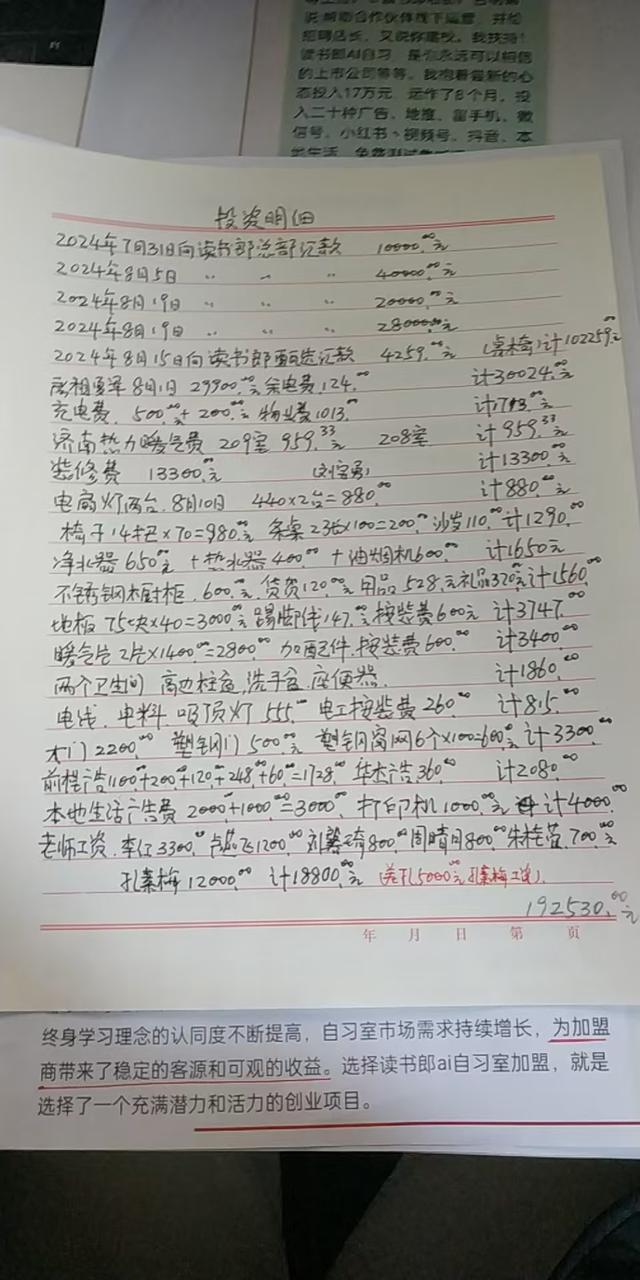 说 帮助合作伙伴线下运营，并给
招聘店长，又说你建校。我扶持！
读书郎AI自习，是你永远可以相信
的上市公司等等。我抱着崭新的心
态投入17万元，运作了8个月。投
入二十种广告、地推、留手机、微
信号、小红书、视频号、抖音、本
地生活、免费测试
投资明细
2024年7月31日向读书郎总部汇款 10000.00元
2024年8月5日 〃 〃 〃 40000.00元
2024年8月19日 〃 〃 〃 20000.00元
2024年8月19日 〃 〃 〃 28000.00元
2024年8月15日向读书郎甄选汇款 4259.00元 (桌椅)计102259.元
房租夏泽8月1日 29900.00元 余电费.124.00 计30024.00元
充电费. 500.00元+200.00元 物业费1013.00 计1713.00元
济南热力暖气费 209室 959.33元 208室 计959.33元
装修费 13300.00元 计13300.00元
电扇灯两台.8月10日 440×2台=880.00 计880.00元
椅子14把×70=980.00元 条桌2张×100=200.00元 沙发110.00 计1290.00
净水器650.00元+热水器400.00+油烟机600.00 计1650元
不锈钢木厨柜.600.00元.货架120.00元 用品528.元 礼品320元 计1560.00
地板 75块×40=3000.00元 踢脚线147.元 按装费600元 计3747.00
暖气片2片×1400.00=2800.00 加配件.按装费600.00 计3400.00
两个卫生间 高边柱盆,洗手盆.座便器. 计1860.00
电线.电料.吸顶灯555.00 电工按装费260.00 计815.00
木门2200.00 塑钢门500.00元 塑钢窗网6个×100=600.00元 计3300.00
前程广告1100+200+120+248+60=1728.00 华杰广告360.00 计2080.00
本地生活广告费2000.00+1000.00=3000.00 打印机1000.00元 计4000.00
老师工资.李红3300.00 1200.00 800.00 周晴月800.00 朱桂萱.700.00元
孔素梅12000.00 计18800.00元 (差孔5000.00元孔素梅工资)
192530.00元
年 月 日 第 页
终身学习理念的认同度不断提高，自习室市场需求持续增长，为加盟
商带来了稳定的客源和可观的收益。选择读书郎ai自习室加盟，就是
选择了一个充满潜力和活力的创业项目。